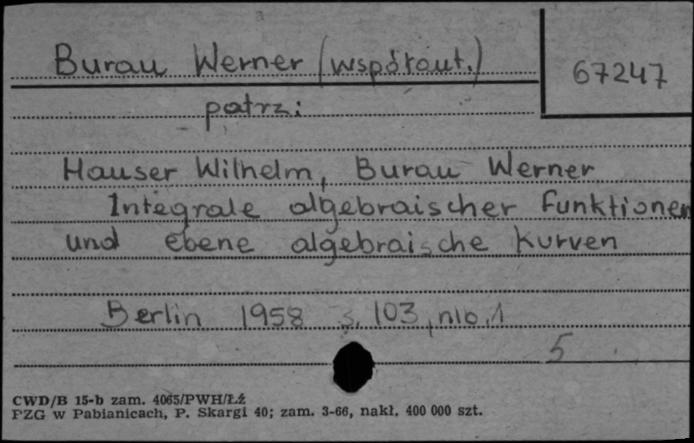 Burau Werner (współaut.)
67247
patrz:
Hauser Wilhelm, Burau Werner
Integrale algebraischer Funktionen
und ebene algebraische Kurven
Berlin 1958 s. 103, nlb. 1
5
CWD/B 15-b zam. 4065/PWH/Łź
PZG w Pabianicach, P. Skargi 40; zam. 3-66, nakł. 400 000 szt.